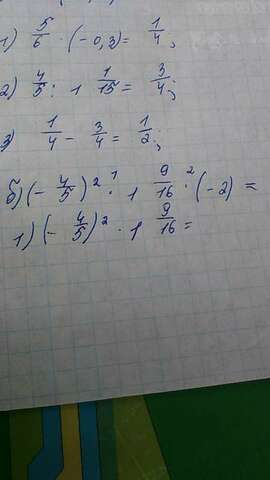 1) 5/6 · (-0,3) = 1/4;
2) 4/5 : 1 1/15 = 3/4;
3) 1/4 - 3/4 = 1/2;
б) (- 4/5)² ·¹ 1 9/16 ·² (-2) =
1) (- 4/5)² · 1 9/16 =